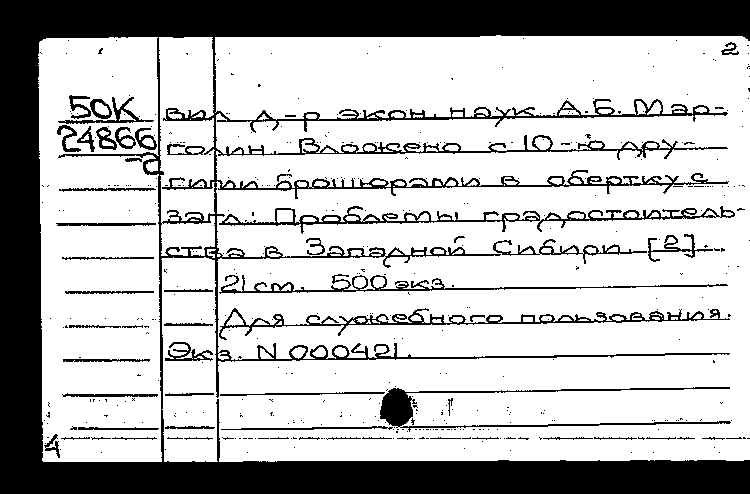 2
50К
24866
-2
вил д-р экон. наук А.Б. Мар-
голин. Вложено с 10-ю дру-
гими брошюрами в обертку с
загл.: Проблемы градостоитель-
ства в Западной Сибири. [2].
21 cm. 500 экз.
Для служебного пользования.
Экз. N 000421.
4